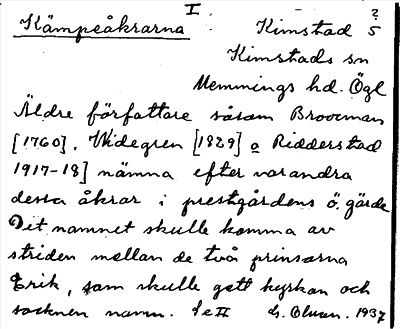 I
Kämpeåkrarna Kimstad ? 5
Kimstads sn
Memmings hd. Ögl
Äldre författare såsom Brooman
[1760]. Widegren [1829] o Ridderstad
1917-18] nämna efter varandra
dessa åkrar i prestgårdens ö. gärde
Det namnet skulle komma av
striden mellan de två prinsarna
Erik, som skulle gett kyrkan och
socknen namn. Se II G. Olsson. 1937